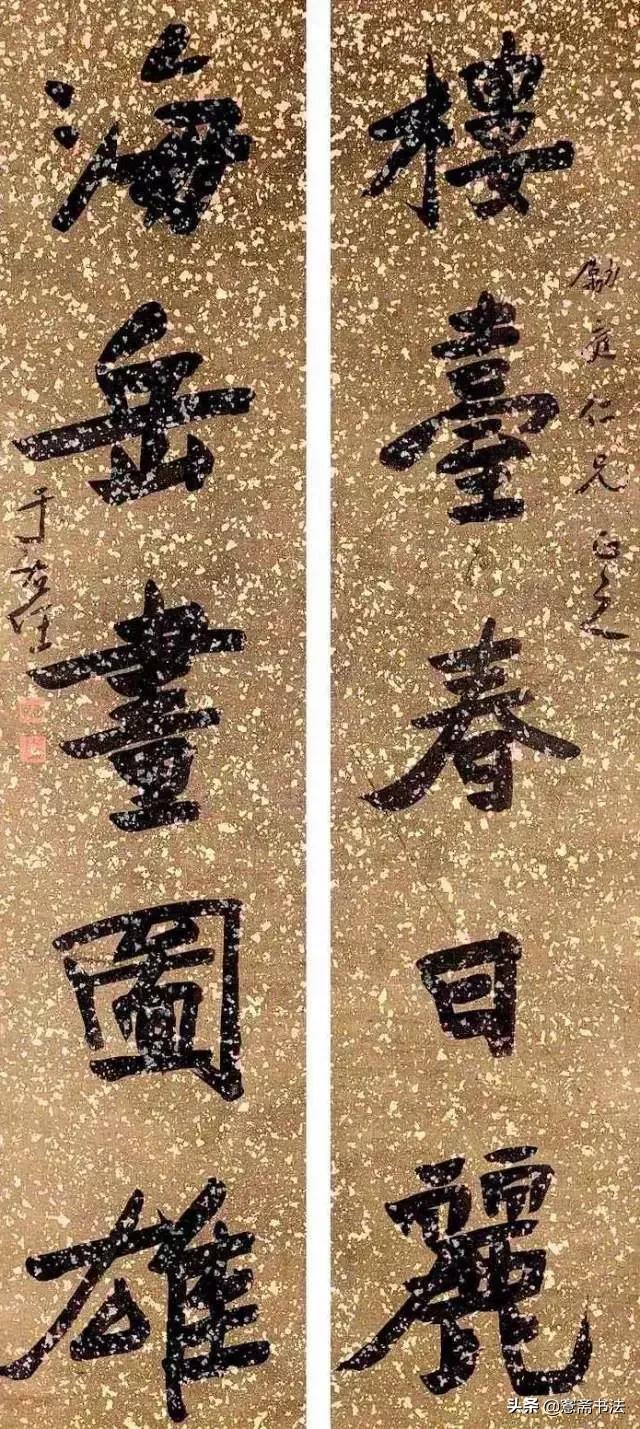 樓臺春日麗
勵庭仁兄正之
海岳畫圖雄
于右任
头条 @窓斋书法